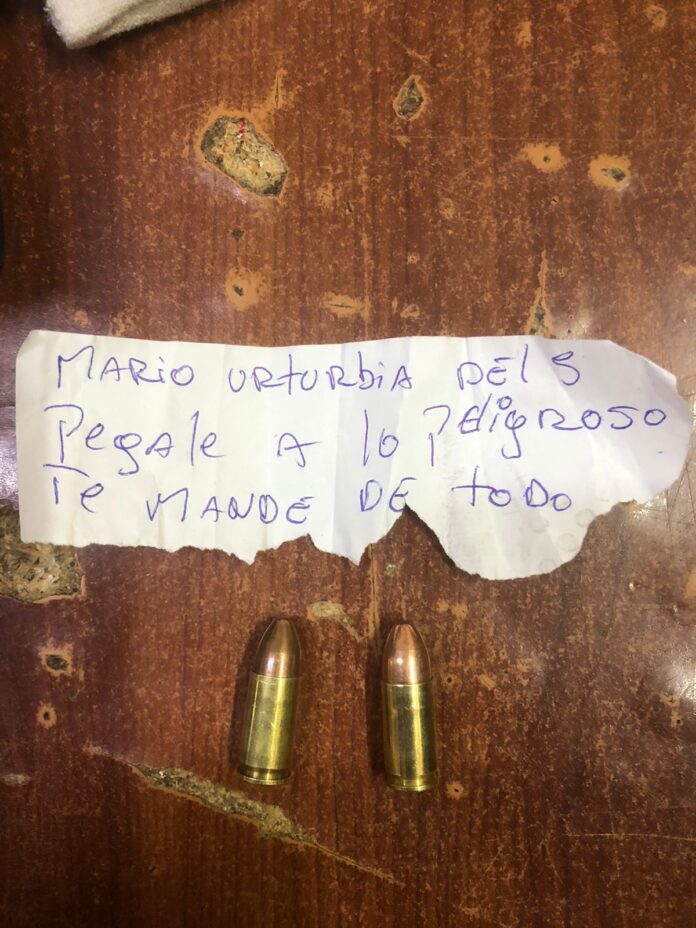 MARIO URTURBIA DEL 5
PEGALE A lo PELIGROSO
TE MANDE DE todo